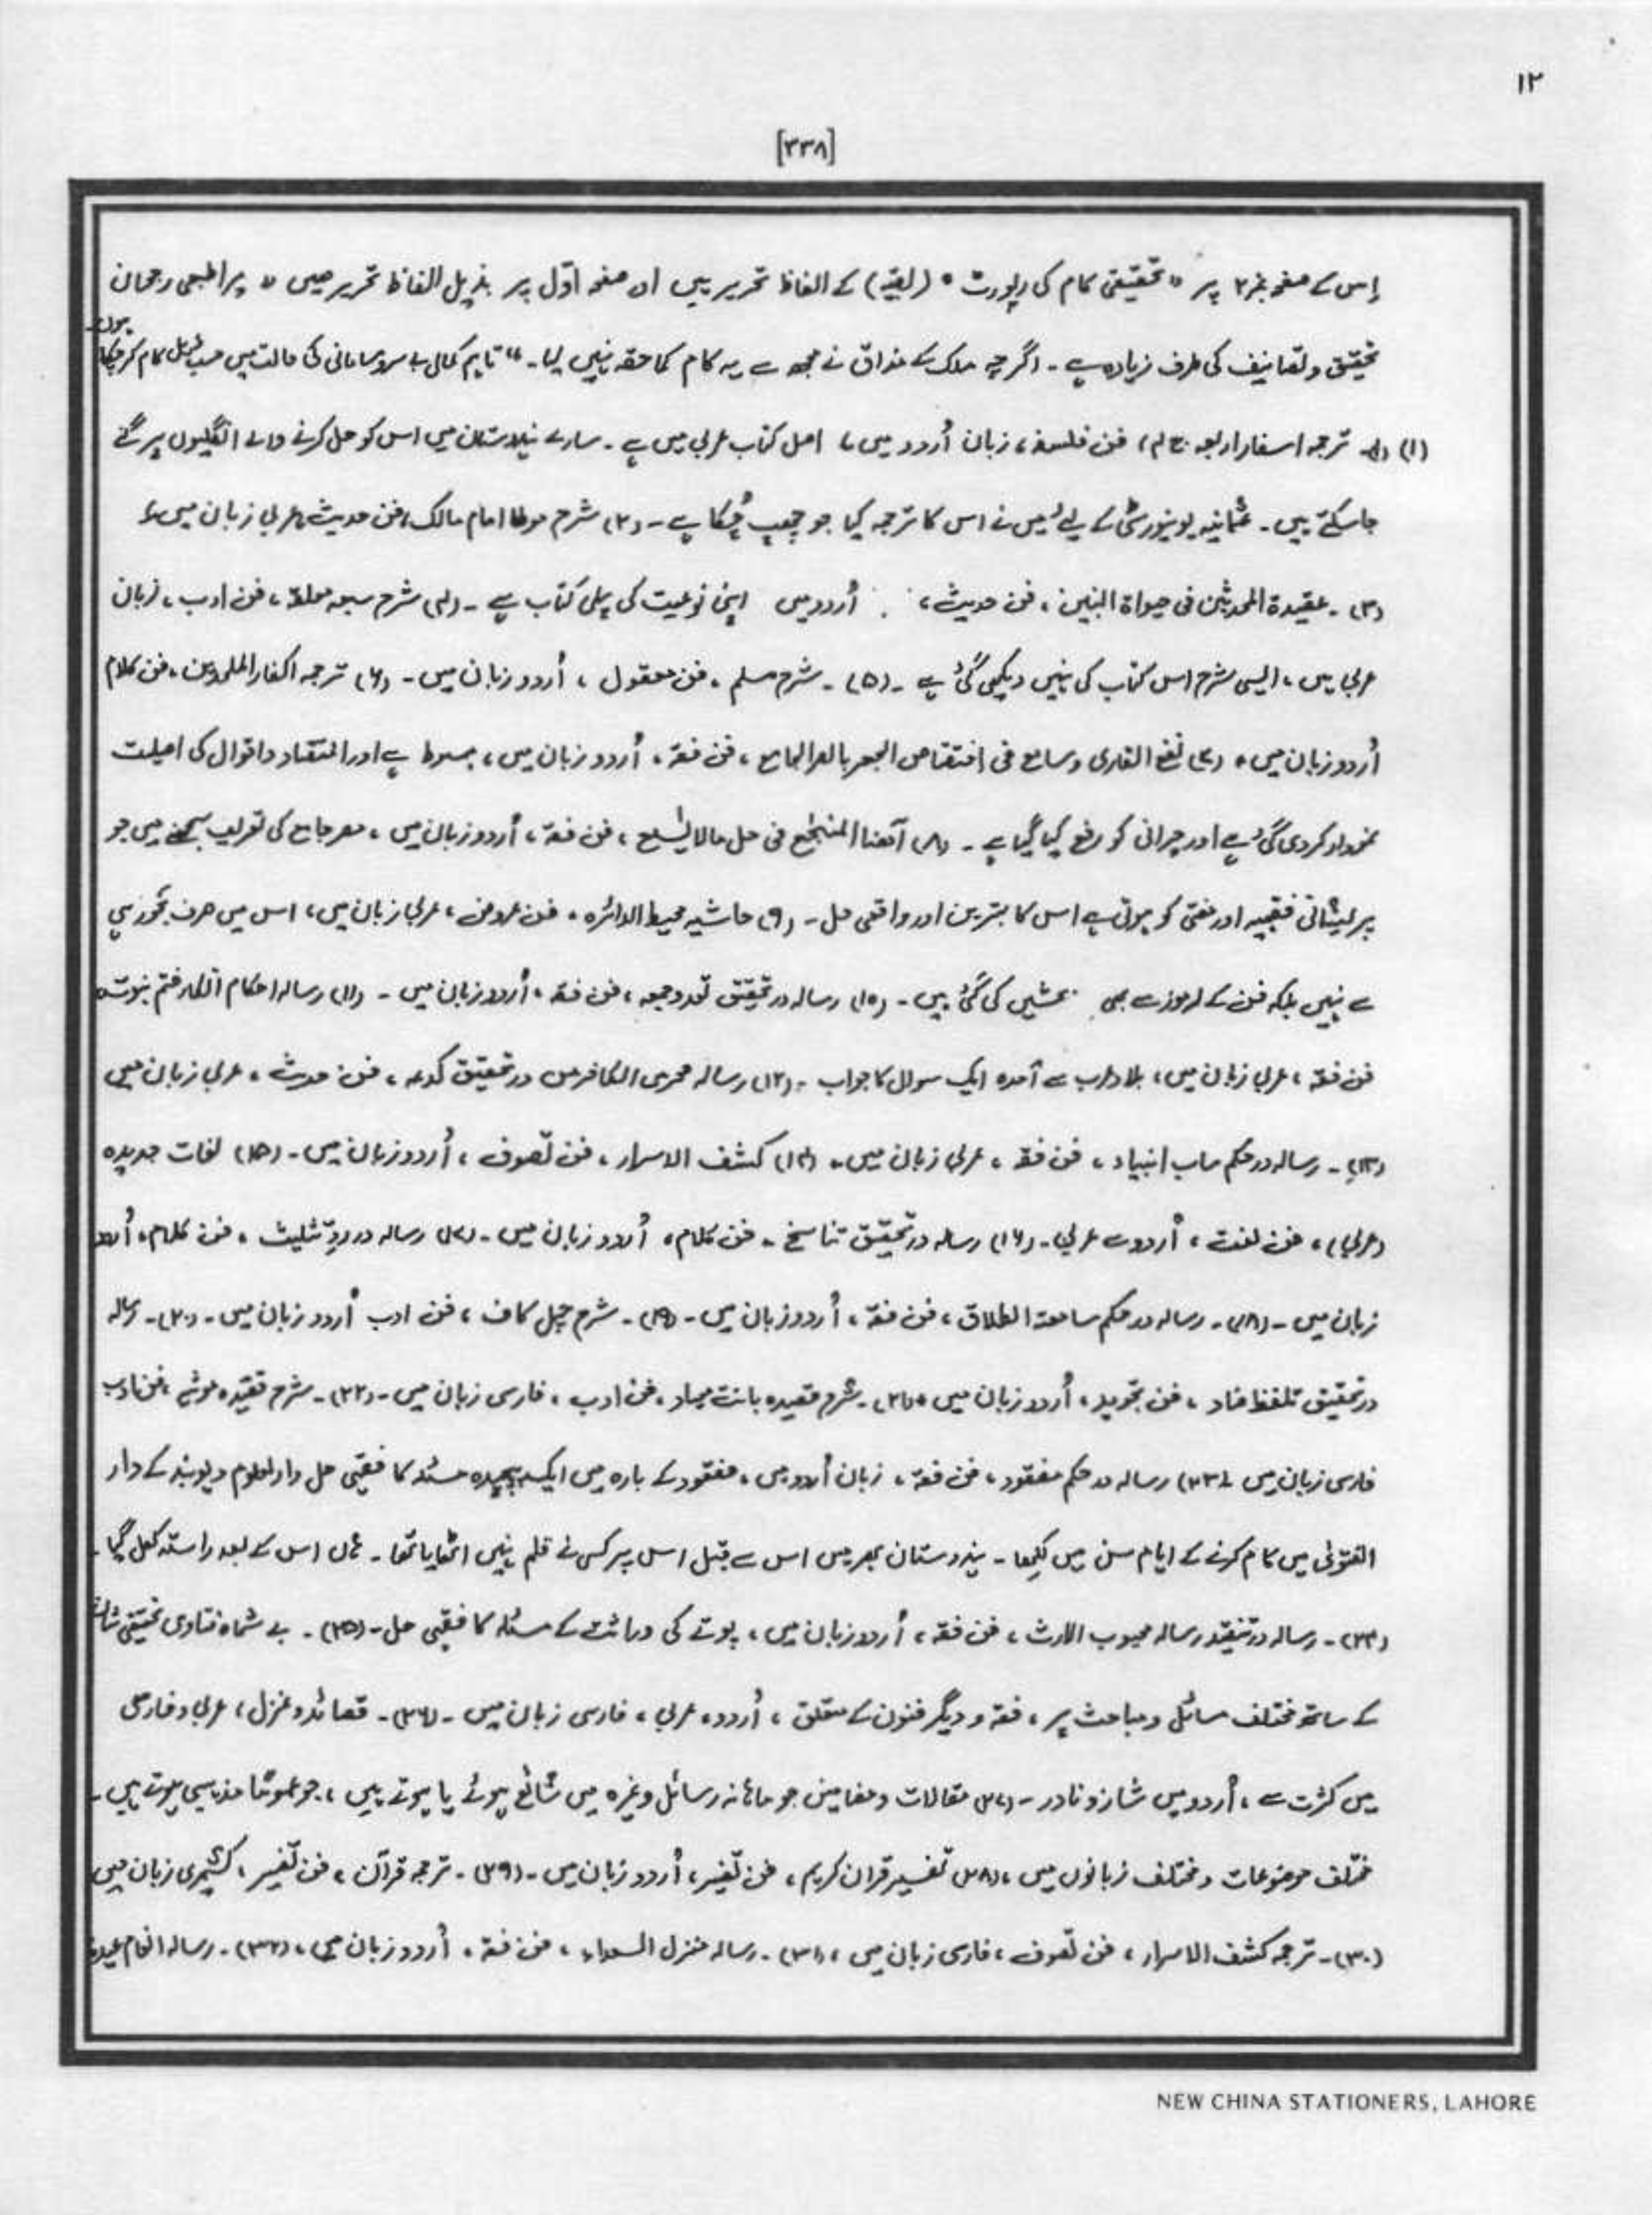 ۱۲
[۳۳۸]
اِس کے صفحہ نمبر ۲ پر "تحقیقی کام کی رپورٹ" (بقیہ) کے الفاظ تحریر ہیں اور صفحہ اوّل پر بذیل الفاظ تحریر ہیں " میرا طبعی رجحان
تحقیق و تصانیف کی طرف زیادہ ہے ۔ اگرچہ ملک کے مذاق نے مجھ سے یہ کام کما حقہ نہیں لیا ۔" تاہم کمال بے سروسامانی کی حالت میں حسب ذیل کام کرچکا ہوں۔
(۱) ترجمہ اسفار اربعہ ج ۴، فن فلسفہ، زبان اُردو میں، اصل کتاب عربی میں ہے ۔ سارے ہندوستان میں اس کو حل کرنے والے انگلیوں پر گنے
جاسکتے ہیں ۔ عثمانیہ یونیورسٹی کے لیے میں نے اس کا ترجمہ کیا جو چھپ چُکا ہے ۔ (۲) شرح موطا امام مالک، فن حدیث، عربی زبان میں،
(۳) ۔ عقیدۃ المحدثین فی حیواۃ النبیین، فن حدیث، اُردو میں اپنی نوعیت کی پہلی کتاب ہے ۔ (۴) شرح سبعہ معلقہ، فن ادب، زبان
عربی میں، ایسی شرح اس کتاب کی نہیں دیکھی گئی ہے ۔ (۵) ۔ شرح مسلم، فن معقول، اُردو زبان میں ۔ (۶) ترجمہ اکفار الملحدین، فن کلام
اُردو زبان میں، (۷) نفع القاری و سامع فی اختصاص الجمعہ بالمصر الجامع، فن فقہ، اُردو زبان میں، مبسوط ہے اور اقوال کی اصلیت
کردی گئی ہے اور حیرانی کو رفع کیا گیا ہے ۔ (۸) فی حل، فن فقہ، اُردو زبان میں، مصر جامع کی تعریف سمجھنے میں جو
پریشانی فقیہ اور مفتی کو ہوتی ہے اس کا بہترین اور واقعی حل ۔ (۹) حاشیہ محیط الدائرہ، فن عروض، عربی زبان میں، اس میں صرف بحور ہی
سے نہیں بلکہ فن کے رموز سے بھی بحثیں کی گئی ہیں ۔ (۱۰) رسالہ در تحقیق تعدد جمعہ، فن فقہ، اُردو زبان میں ۔ (۱۱) رسالہ احکام انکار ختم نبوت،
فن فقہ، عربی زبان میں، بلاد عرب سے آمدہ ایک سوال کا جواب ۔ (۱۲) رسالہ در تحقیق، فن حدیث، عربی زبان میں
(۱۳) ۔ رسالہ در حکم ساب انبیاء، فن فقہ، عربی زبان میں ۔ (۱۴) کشف الاسرار، فن تصوف، اُردو زبان میں ۔ (۱۵) لغات جدیدہ
(عربی)، فن لغت، اُردو سے عربی ۔ (۱۶) رسالہ در تحقیق تناسخ ۔ فن کلام، اُردو زبان میں ۔ (۱۷) رسالہ در ردِّ تثلیث، فن کلام، اُردو
زبان میں ۔ (۱۸) ۔ رسالہ در حکم سامعۃ الطلاق، فن فقہ، اُردو زبان میں ۔ (۱۹) ۔ شرح چہل کاف، فن ادب اُردو زبان میں ۔ (۲۰) ۔ رسالہ
در تحقیق تلفظ ضاد، فن تجوید، اُردو زبان میں، (۲۱) ۔ شرح قصیدہ بانت سعاد، فن ادب، فارسی زبان میں ۔ (۲۲) ۔ شرح قصیدہ غوثیہ، فن ادب
فارسی زبان میں ۔ (۲۳) رسالہ در حکم مفقود، فن فقہ، زبان اُردو میں، مفقود کے بارہ میں ایک پیچیدہ مسئلہ کا فقہی حل دارالعلوم دیوبند کے دار
الفتویٰ میں کام کرنے کے ایام سن میں لکھا ۔ ہندوستان بھر میں اس سے قبل اس پر کسی نے قلم نہیں اٹھایا تھا ۔ ہاں اس کے بعد راستہ کھل گیا ۔
(۲۴) ۔ رسالہ در تنقید رسالہ محبوب الارث، فن فقہ، اُردو زبان میں، پوتے کی وراثت کے مسئلہ کا فقہی حل ۔ (۲۵) ۔ بے شمار فتاویٰ تحقیقی شان
کے ساتھ مختلف مسائل و مباحث پر، فقہ و دیگر فنون کے متعلق، اُردو، عربی، فارسی زبان میں ۔ (۲۶) ۔ قصائد و غزل، عربی و فارسی
میں کثرت سے، اُردو میں شاز و نادر ۔ (۲۷) مقالات و مضامین جو ماہانہ رسائل وغیرہ میں شائع ہوئے یا ہوتے ہیں، جو عموماً مذہبی ہوتے ہیں ۔
مختلف موضوعات و مختلف زبانوں میں، (۲۸) تفسیر قرآن کریم، فن تفسیر، اُردو زبان میں ۔ (۲۹) ۔ ترجمہ قرآن، فن تفسیر، کشمیری زبان میں
(۳۰) ۔ ترجمہ کشف الاسرار، فن تصوف، فارسی زبان میں، (۳۱) ۔ رسالہ منزل السعداء، فن فقہ، اُردو زبان میں، (۳۲) ۔ رسالہ
NEW CHINA STATIONERS, LAHORE